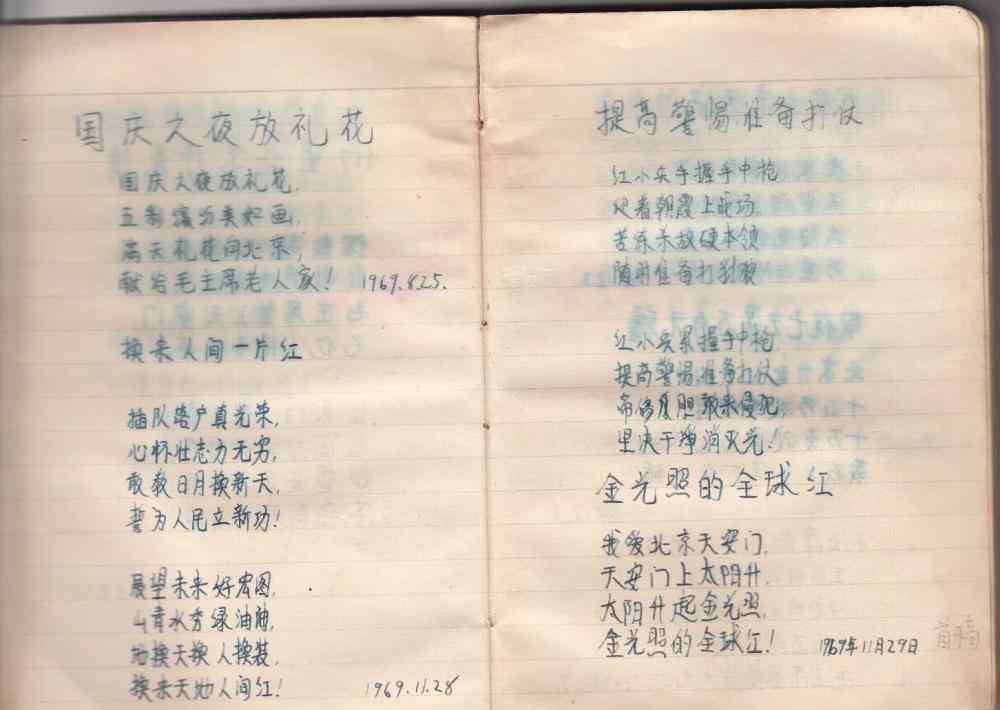 国庆之夜放礼花
国庆之夜放礼花,
五彩缤纷美如画,
满天礼花向北京,
献给毛主席老人家! 1969.8.25.
换来人间一片红
插队落户真光荣,
心怀壮志力无穷,
敢教日月换新天,
誓为人民立新功!
展望未来好宏图,
山青水秀绿油油,
地换天换人换装,
换来天地人间红! 1969.11.28
提高警惕准备打仗
红小兵手握手中枪
迎着朝霞上战场
苦练杀敌硬本领
随时准备打豺狼
红小兵紧握手中枪,
提高警惕准备打仗
帝修反胆敢来侵犯,
坚决干净消灭光!
金光照的全球红
我爱北京天安门,
天安门上太阳升,
太阳升起金光照,
金光照的全球红! 1969年11月29日 首稿